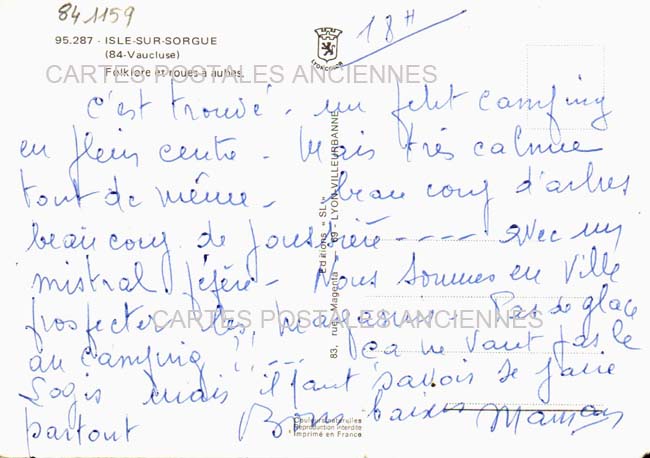 841159
18H
95.287 - ISLE-SUR-SORGUE
(84-Vaucluse)
Folklore et roues à aubes.
LYONCOLOR
CARTES POSTALES ANCIENNES
c'est trouvé - un petit camping
en plein centre - Mais très calme
tout de même - beaucoup d'arbres
beaucoup de poussière - - - - avec un
mistral - Nous sommes en ville
prospecter les magasins - Pas de glace
au camping !! - - - ça ne vaut pas le
Logis mais il faut savoir se faire
partout Bons baisers Maman
CARTES POSTALES ANCIENNES
Editions « SL »
83, rue Magenta - 69 - LYON-VILLEURBANNE
Couleurs naturelles
Reproduction interdite
Imprimé en France